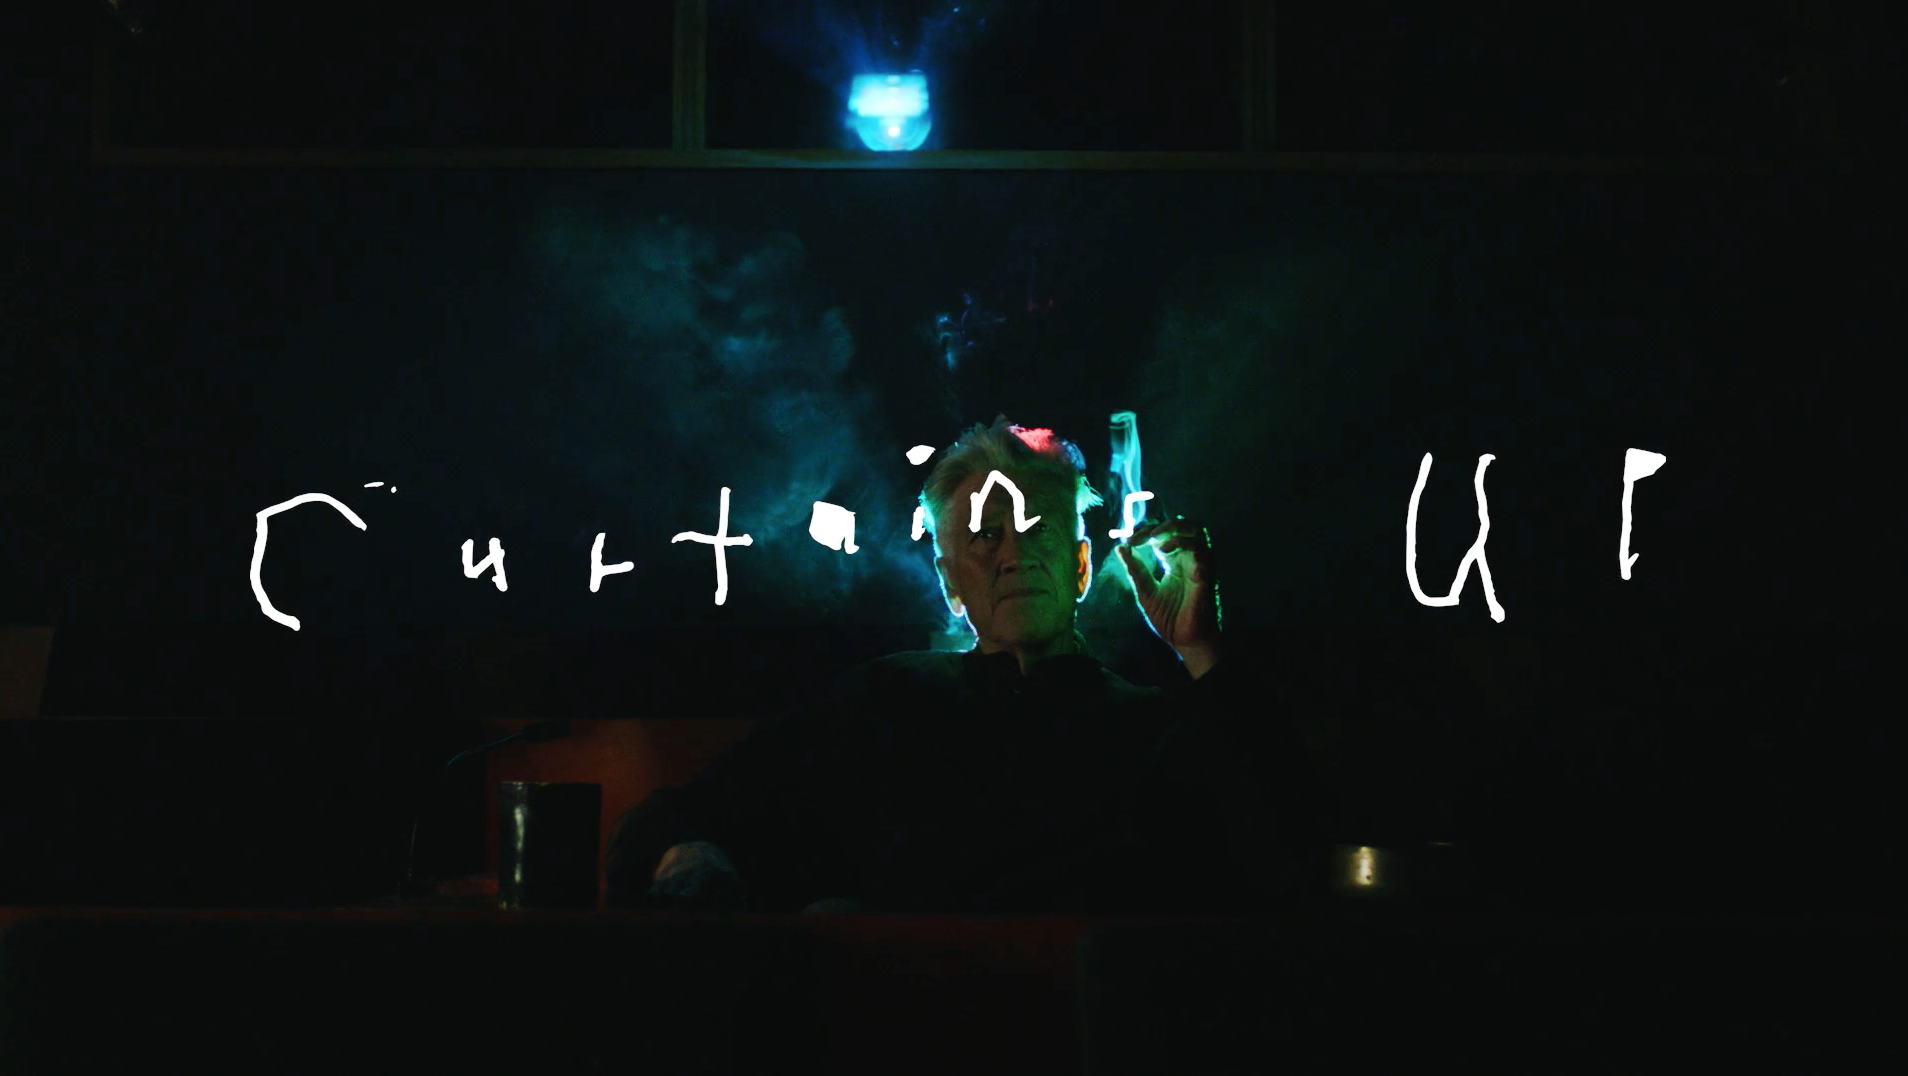 Curtains UP